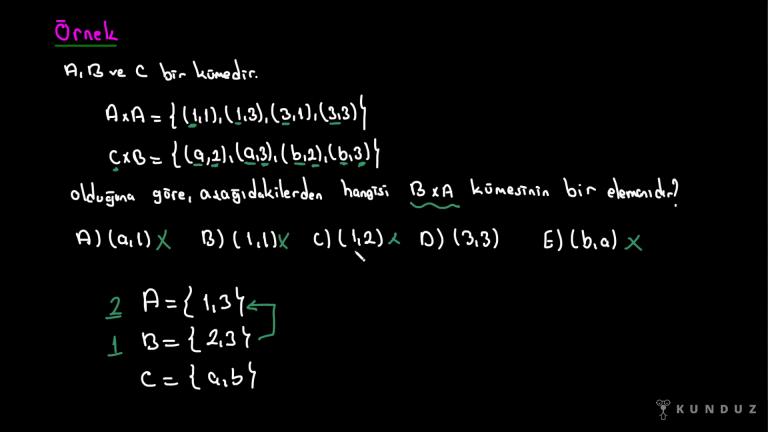 Örnek
A, B ve C bir kümedir.
A×A = {(1,1),(1,3),(3,1),(3,3)}
C×B = {(a,2),(a,3),(b,2),(b,3)}
olduğuna göre, aşağıdakilerden hangisi B×A kümesinin bir elemanıdır?
A) (a,1) X B) (1,1) X C) (1,2) X D) (3,3) E) (b,a) X
2 A = {1,3}
1 B = {2,3}
C = {a,b}
KUNDUZ